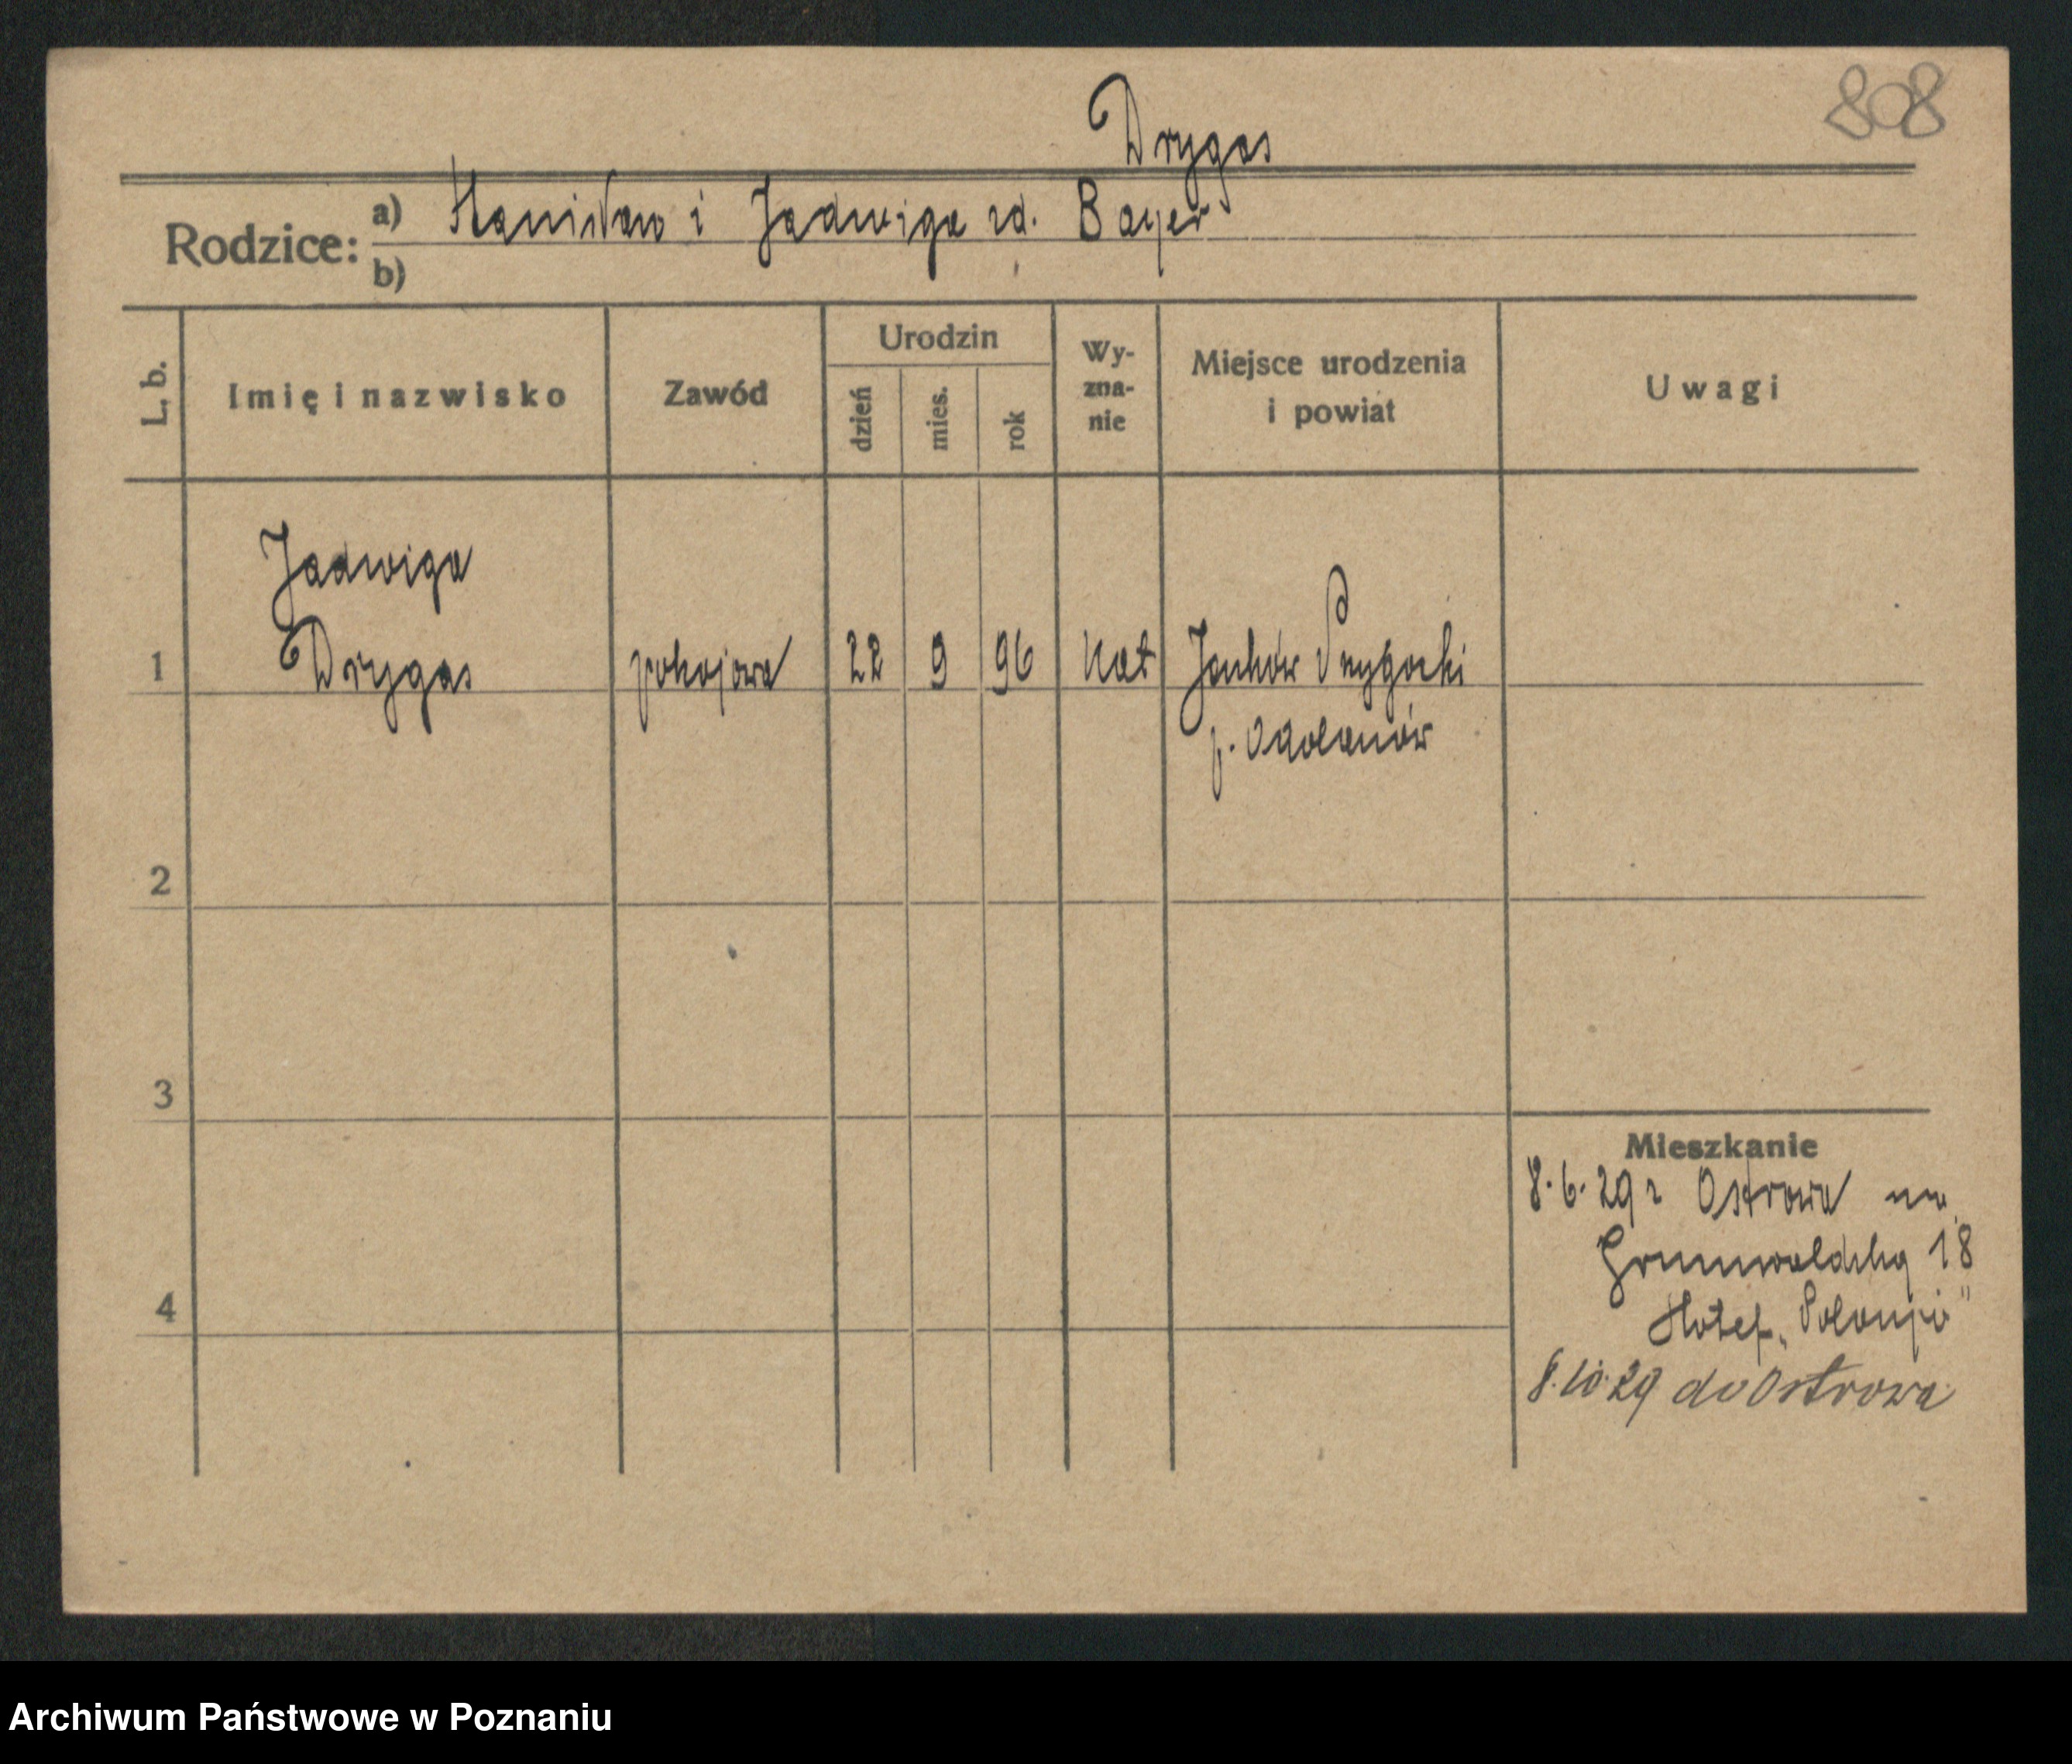 808
Drygas
Rodzice: a) Stanisław i Jadwiga zd. Bayer
b)
L. b.
Imię i nazwisko
Zawód
Urodzin
dzień
mies.
rok
Wy-
zna-
nie
Miejsce urodzenia
i powiat
Uwagi
Jadwiga
1 Drygas pokojowa 22 9 96 kat Janków Przygocki
p. Odolanów
2
3
4
Mieszkanie
8.6.29 z Ostrowa na
Grunwaldzką 18
Hotel „Polonja"
8.10.29 do Ostrowa
Archiwum Państwowe w Poznaniu